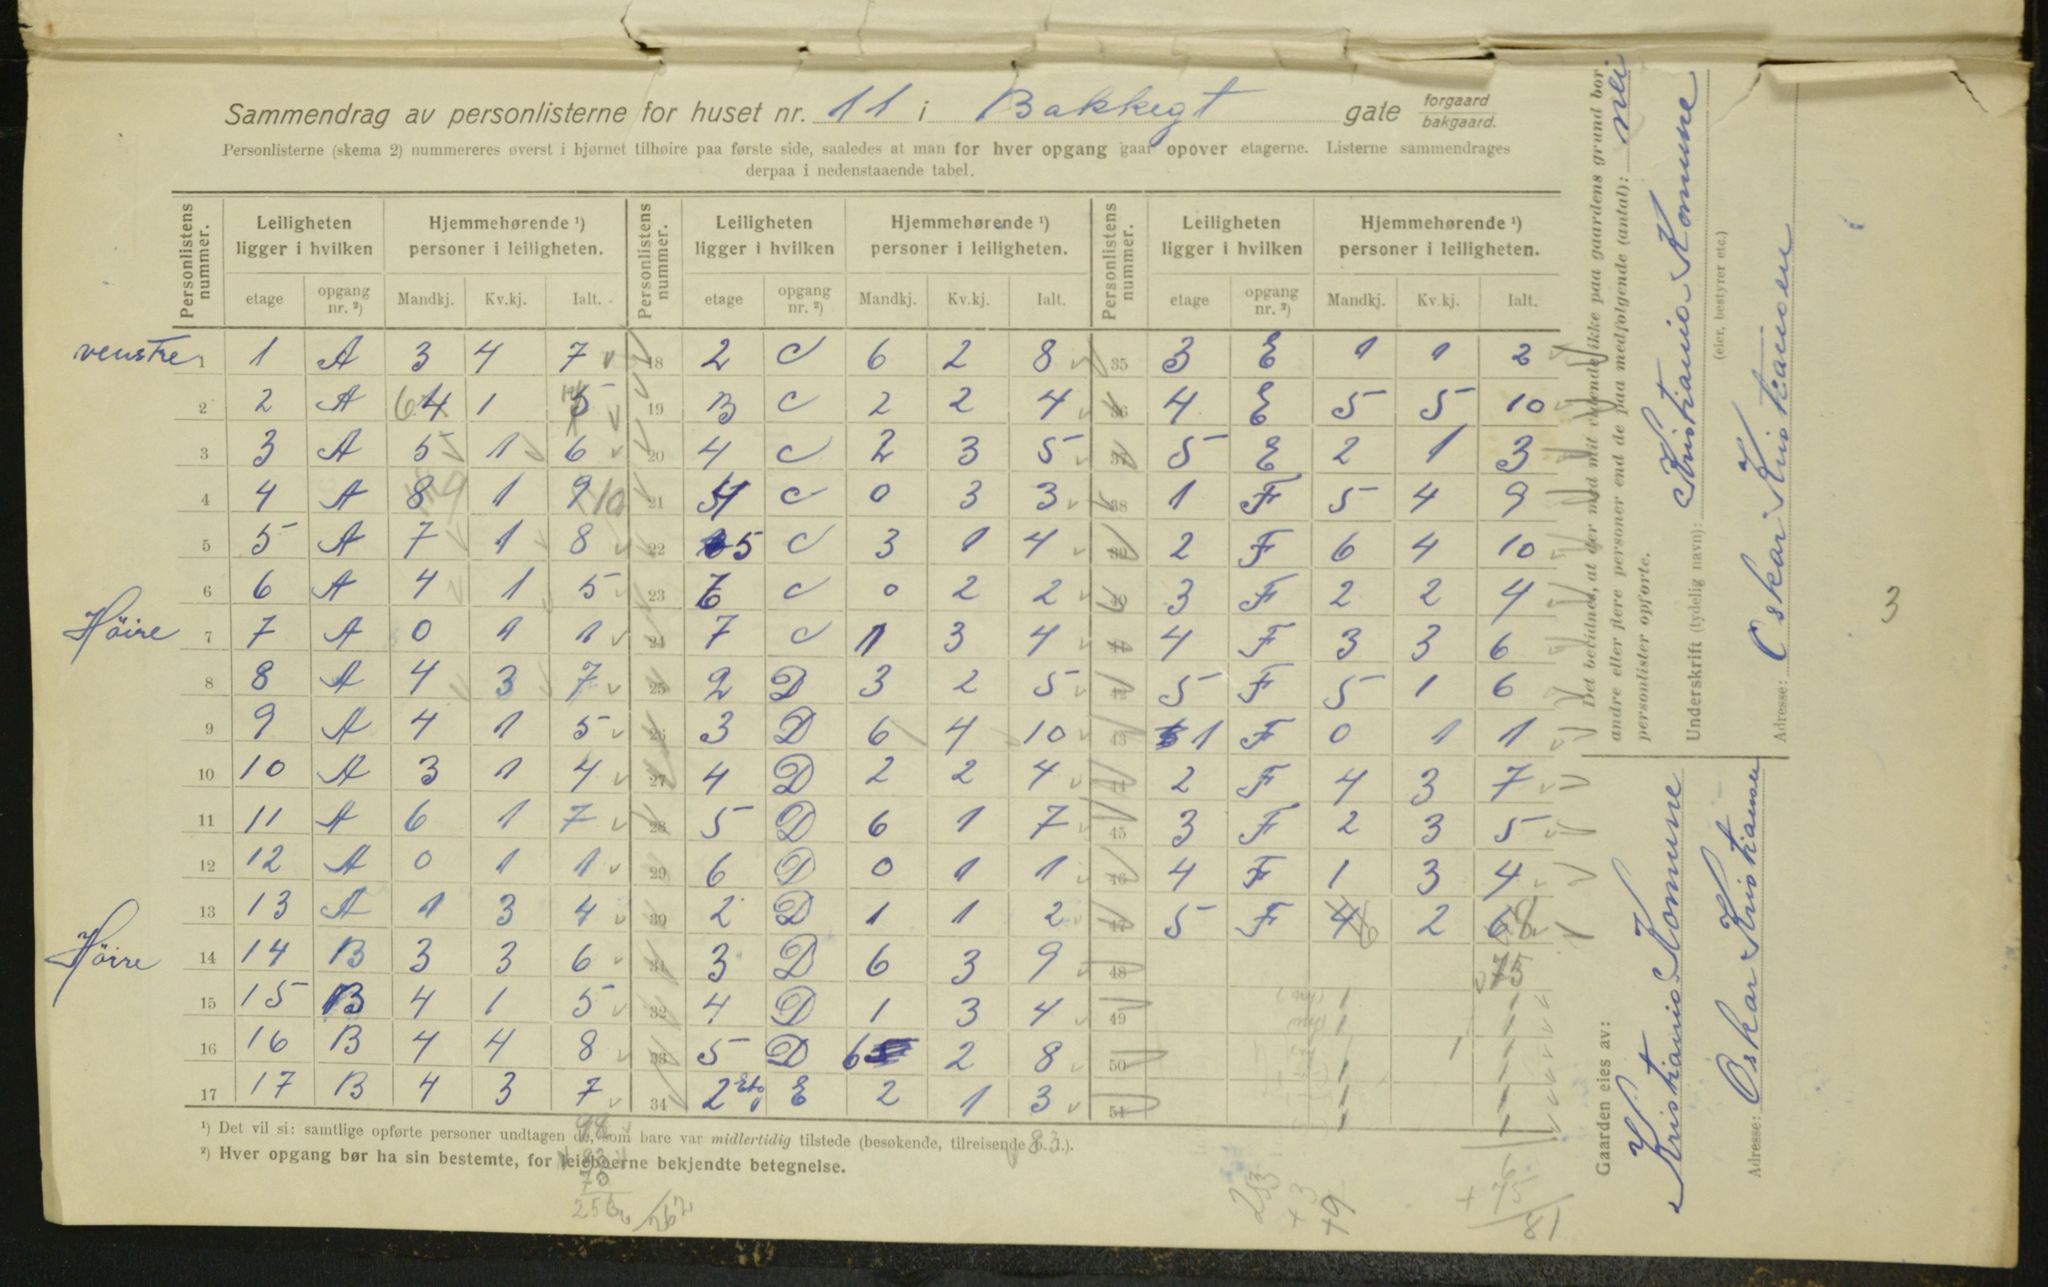 Sammendrag av personlisterne for huset nr. 11 i Bakkegt gate forgaard bakgaard.
Personlisterne (skema 2) nummereres øverst i hjørnet tilhøire paa første side, saaledes at man for hver opgang gaar opover etagerne. Listerne sammendrages
derpaa i nedenstaaende tabel.
Personlistens nummer. Leiligheten ligger i hvilken Hjemmehørende ¹) personer i leiligheten. Personlistens nummer. Leiligheten ligger i hvilken Hjemmehørende ¹) personer i leiligheten. Personlistens nummer. Leiligheten ligger i hvilken Hjemmehørende ¹) personer i leiligheten.
etage opgang nr. ²) Mandkj. Kv.kj. Ialt. etage opgang nr. ²) Mandkj. Kv.kj. Ialt. etage opgang nr. ²) Mandkj. Kv.kj. Ialt.
venstre 1 1 A 3 4 7 18 2 C 6 2 8 35 3 E 1 1 2
2 2 A 6 4 1 5 19 3 C 2 2 4 36 4 E 5 5 10
3 3 A 5 1 6 20 4 C 2 3 5 37 5 E 2 1 3
4 4 A 8 9 1 9 10 21 4 C 0 3 3 38 1 F 5 4 9
5 5 A 7 1 8 22 5 C 3 1 4 39 2 F 6 4 10
6 6 A 4 1 5 23 6 C 0 2 2 40 3 F 2 2 4
Höire 7 7 A 0 1 1 24 7 C 1 3 4 41 4 F 3 3 6
8 8 A 4 3 7 25 2 D 3 2 5 42 5 F 5 1 6
9 9 A 4 1 5 26 3 D 6 4 10 43 1 F 0 1 1
10 10 A 3 1 4 27 4 D 2 2 4 44 2 F 4 3 7
11 11 A 6 1 7 28 5 D 6 1 7 45 3 F 2 3 5
12 12 A 0 1 1 29 6 D 0 1 1 46 4 F 1 3 4
13 13 A 1 3 4 30 2 D 1 1 2 47 5 F 4 6 2 6 8
Höire 14 14 B 3 3 6 31 3 D 6 3 9 48 75
15 15 B 4 1 5 32 4 D 1 3 4 49 1 1
16 16 B 4 4 8 33 5 D 6 2 8 50 1 1
17 17 B 4 3 7 34 2 E 2 1 3 51 1 1
¹) Det vil si: samtlige opførte personer undtagen de, som bare var midlertidig tilstede (besøkende, tilreisende o. l.).
²) Hver opgang bør ha sin bestemte, for leieboerne bekjendte betegnelse.
98
83
262
253
+ 3
+9
6
+ 75
81
Det bevidnes, at der med mit vidende ikke paa gaardens grund bor
andre eller flere personer end de paa medfølgende (antal):
personlister opførte.
Underskrift (tydelig navn): Kristiania Komune
(eier, bestyrer etc.)
Adresse: Oskar Kristiansen
Gaarden eies av: Kristiania Komune
Adresse: Oskar Kristiansen
3